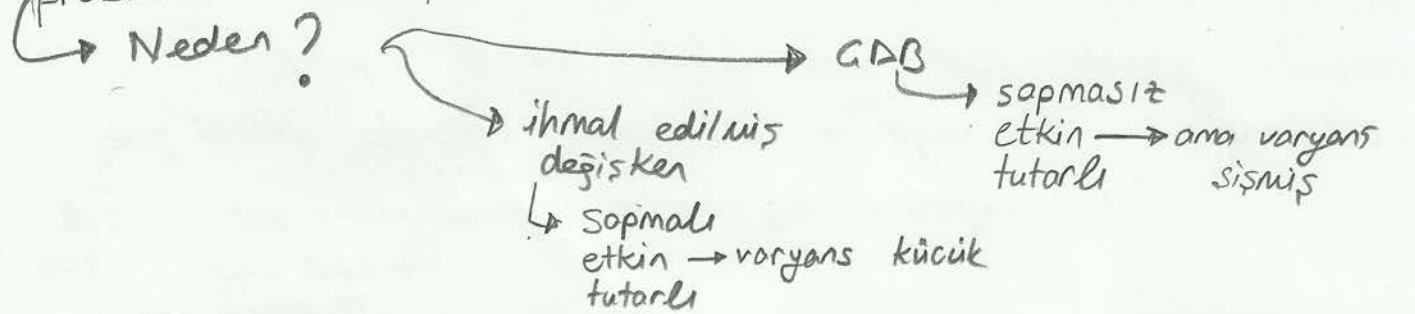 Neden?
GDB
sapmasız
etkin → ama varyans
tutarlı şişmiş
ihmal edilmiş
değişken
sapmalı
etkin → varyans kücük
tutarlı